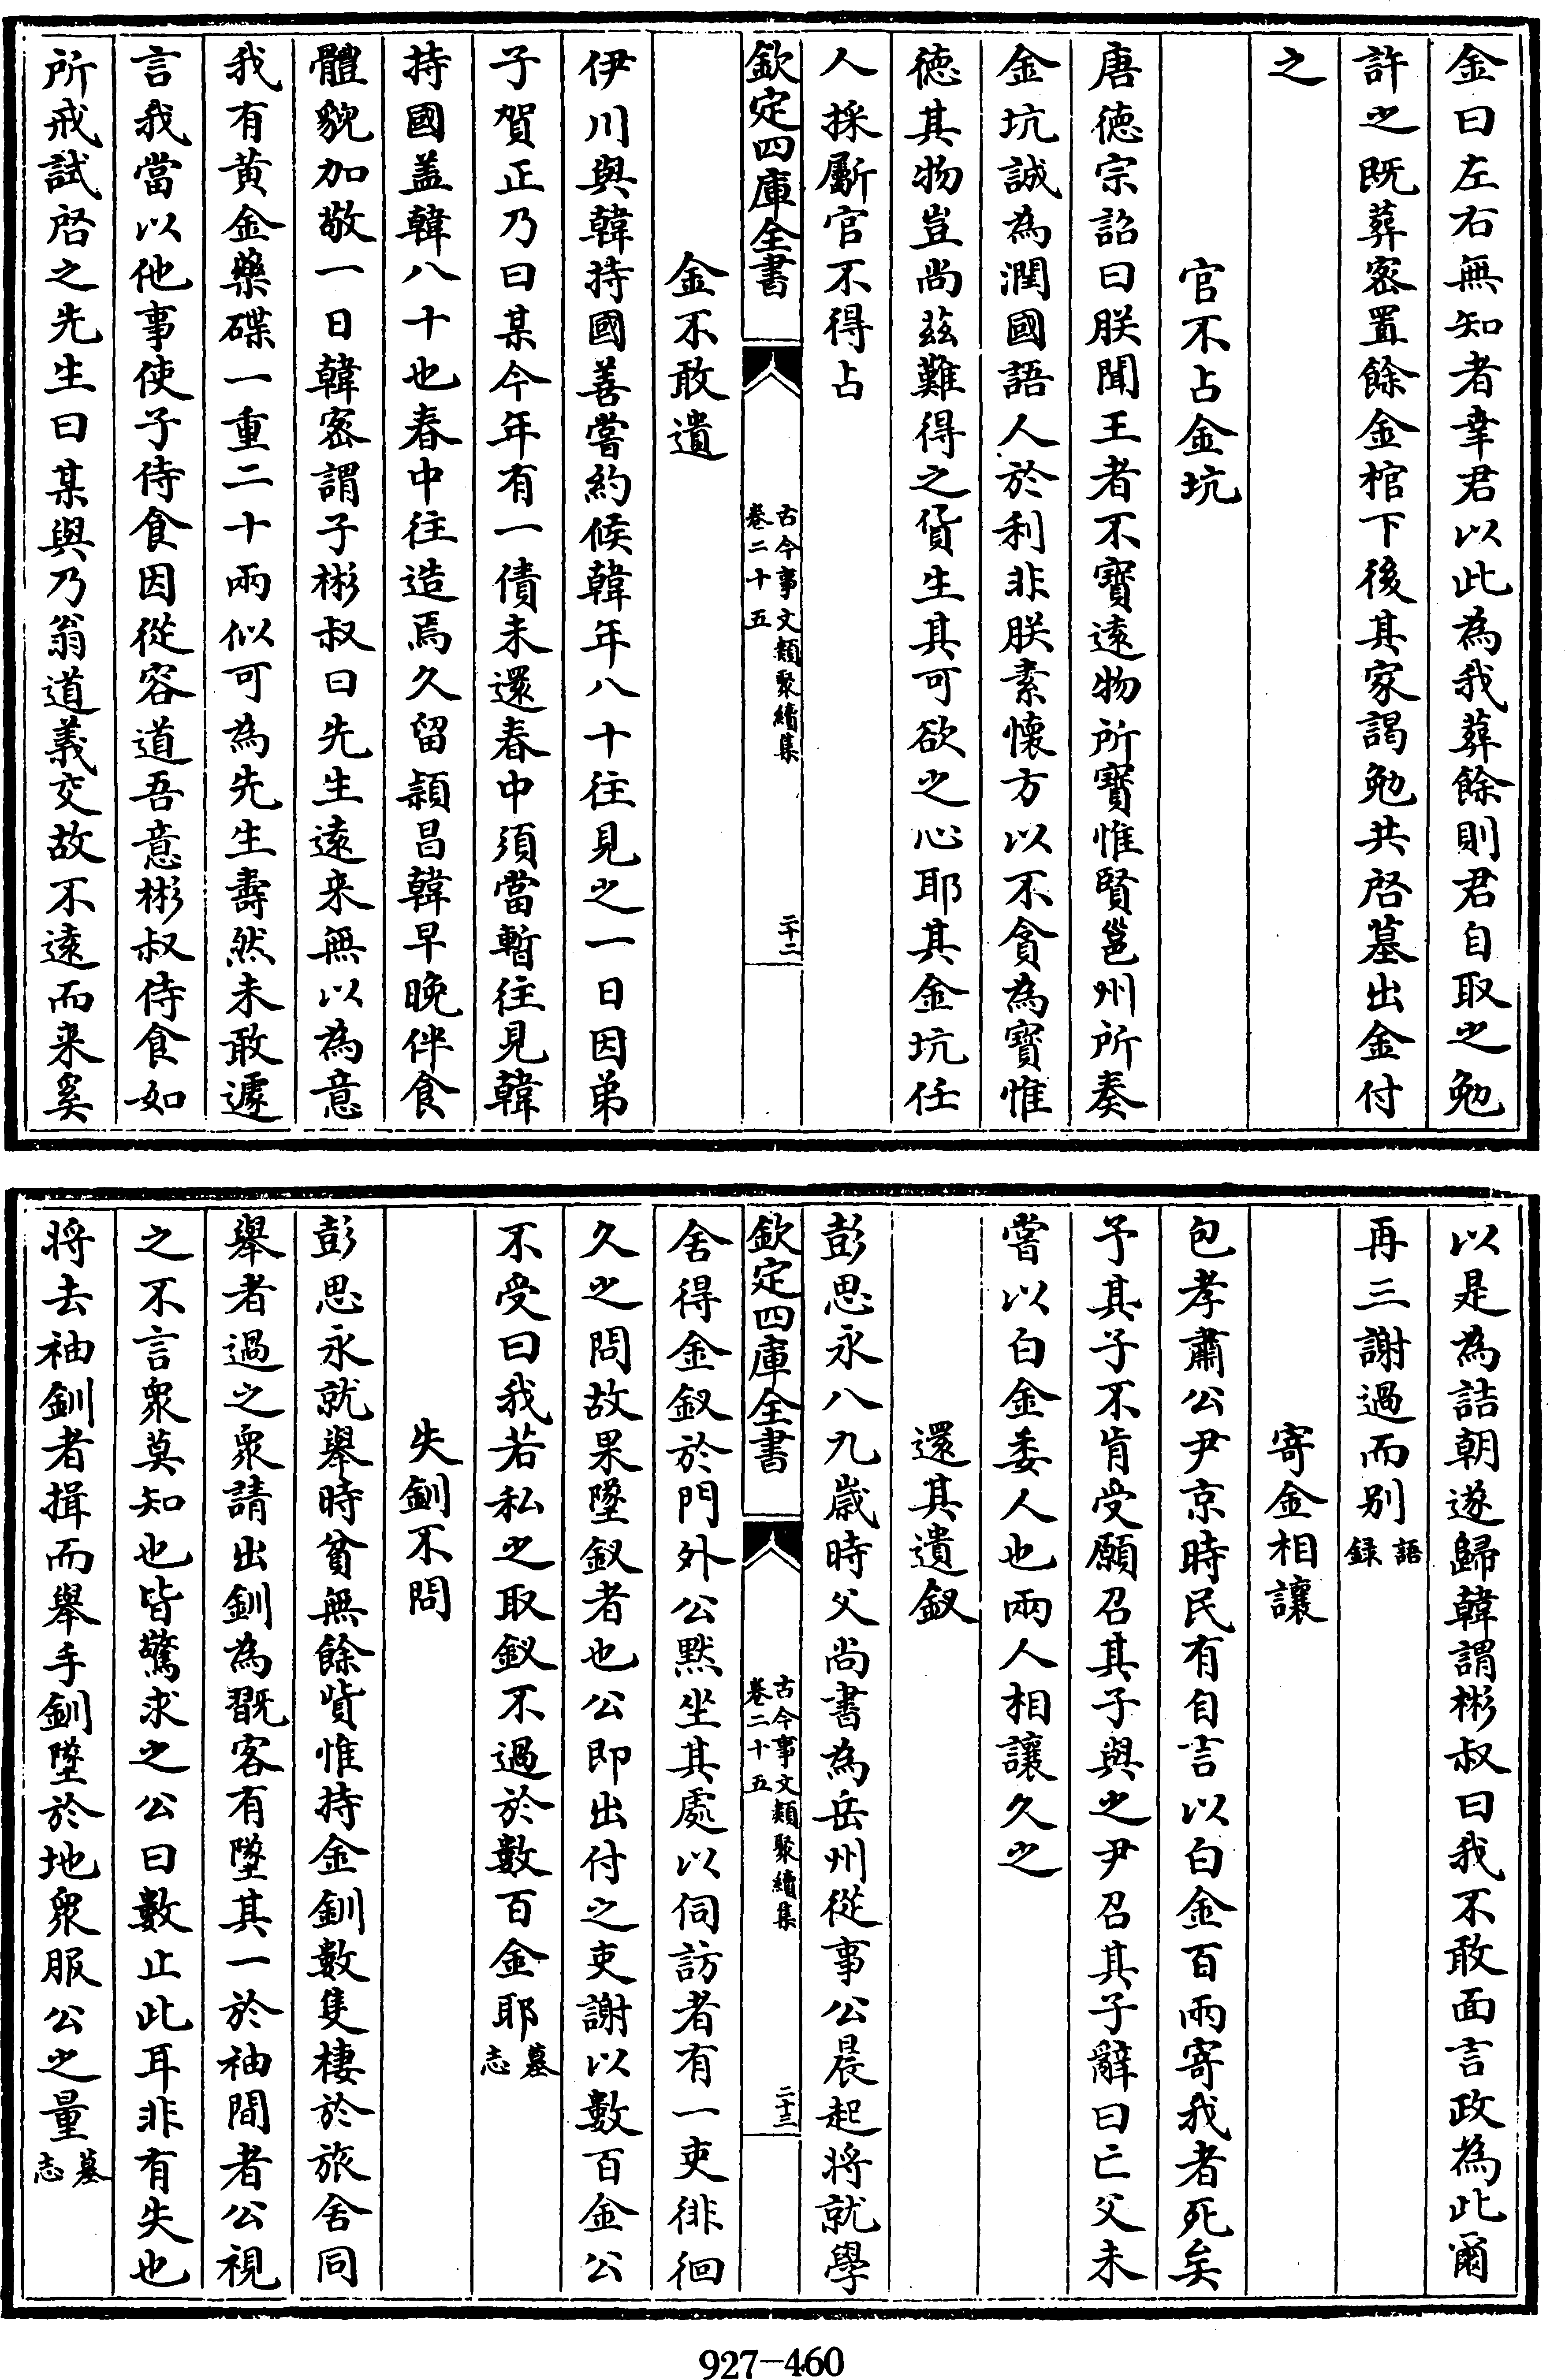 金曰左右無知者幸君以此為我葬餘則君自取之勉
許之既葬宻置餘金棺下後其家謁勉共啓墓出金付
之
官不占金坑
唐徳宗詔曰朕聞王者不寳逺物所寳惟賢邕州所奏
金坑誠為潤國語人於利非朕素懐方以不貪為寳惟
徳其物豈尚兹難得之貨生其可欲之心耶其金坑任
人採斸官不得占
欽定四庫全書
古今事文類聚續集
卷二十五
二十二
金不敢遺
伊川與韓持國善嘗約候韓年八十往見之一日因弟
子賀正乃曰某今年有一債未還春中須當暫往見韓
持國盖韓八十也春中往造焉久留潁昌韓早晚伴食
體貌加敬一日韓宻謂子彬叔曰先生逺来無以為意
我有黄金藥楪一重二十兩似可為先生壽然未敢遽
言我當以他事使子侍食因從容道吾意彬叔侍食如
所戒試啓之先生曰某與乃翁道義交故不逺而来奚
以是為詰朝遂歸韓謂彬叔曰我不敢面言政為此爾
再三謝過而别語録
寄金相讓
包孝肅公尹京時民有自言以白金百兩寄我者死矣
予其子不肯受願召其子與之尹召其子辭曰亡父未
嘗以白金委人也兩人相讓久之
還其遺釵
彭思永八九嵗時父尚書為岳州從事公晨起将就學
欽定四庫全書
古今事文類聚續集
卷二十五
二十三
舍得金釵於門外公黙坐其處以伺訪者有一吏徘徊
久之問故果墜釵者也公即出付之吏謝以數百金公
不受曰我若私之取釵不過於數百金耶墓志
失釧不問
彭思永就舉時貧無餘貲惟持金釧數隻棲於旅舍同
舉者過之衆請出釧為翫客有墜其一於袖間者公視
之不言衆莫知也皆驚求之公曰數止此耳非有失也
将去袖釧者揖而舉手釧墜於地衆服公之量墓志
927-460